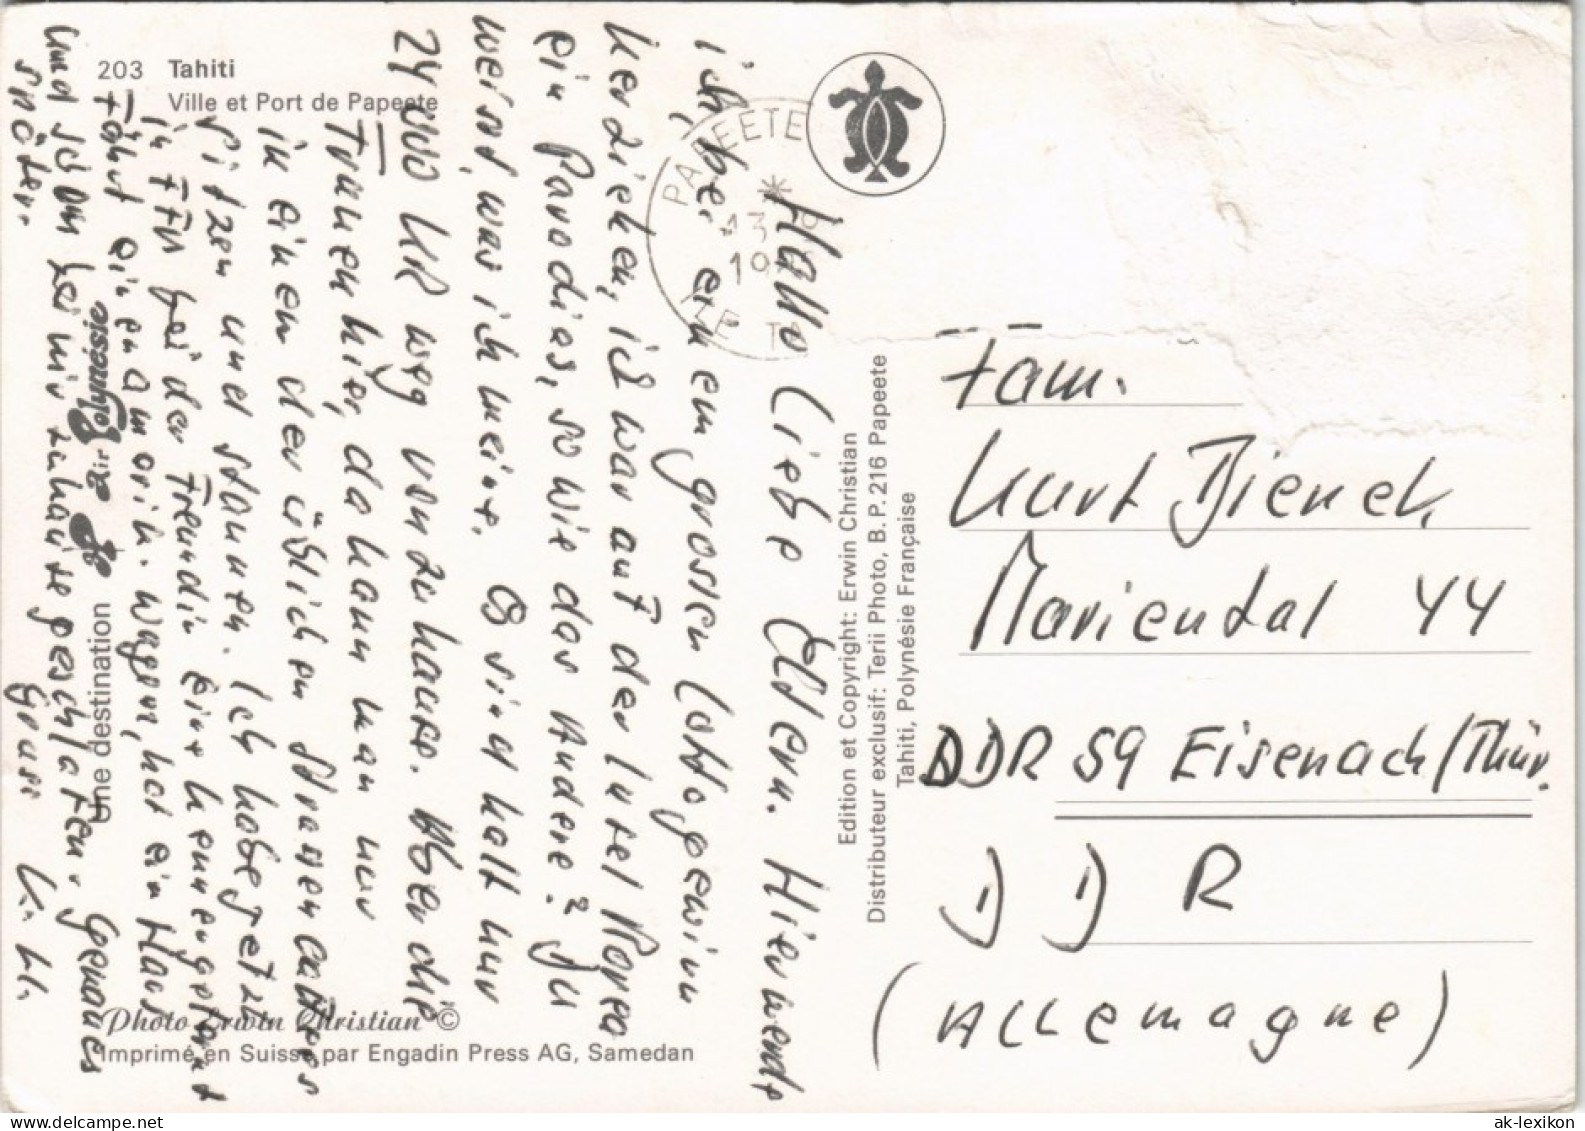 203 Tahiti
Ville et Port de Papeete
PAPEETE
13
ILE T
Hallo liebe Eltern. Hier werde
ich hier ein grossen Lottogewinn
verziehen, ich war auf der Insel Morea
ein Paradies, so wie das Andere? Du
weisst was ich meine. Es sind halt nur
24000 KM weg von zu hause. Aber die
Trauen hier, da kann man nur
in einem der üblichen Strassencaffees
sitzen und staunen. Ich habe jetzt
in FFM bei der Freundin eine kennengelernt
fährt einen amerik. wagen, hat ein Haus
und ist schon bei mir zuhause geschlafen. Genaues
später.
Gruss
Une destination
air Polynésie
Photo Erwin Christian ©
Imprimé en Suisse par Engadin Press AG, Samedan
Edition et Copyright: Erwin Christian
Distributeur exclusif: Terii Photo, B.P. 216 Papeete
Tahiti, Polynésie Française
Fam.
Kurt Bienek
Mariental 44
DDR 59 Eisenach/Thür.
DDR
(Allemagne)
ak-lexikon